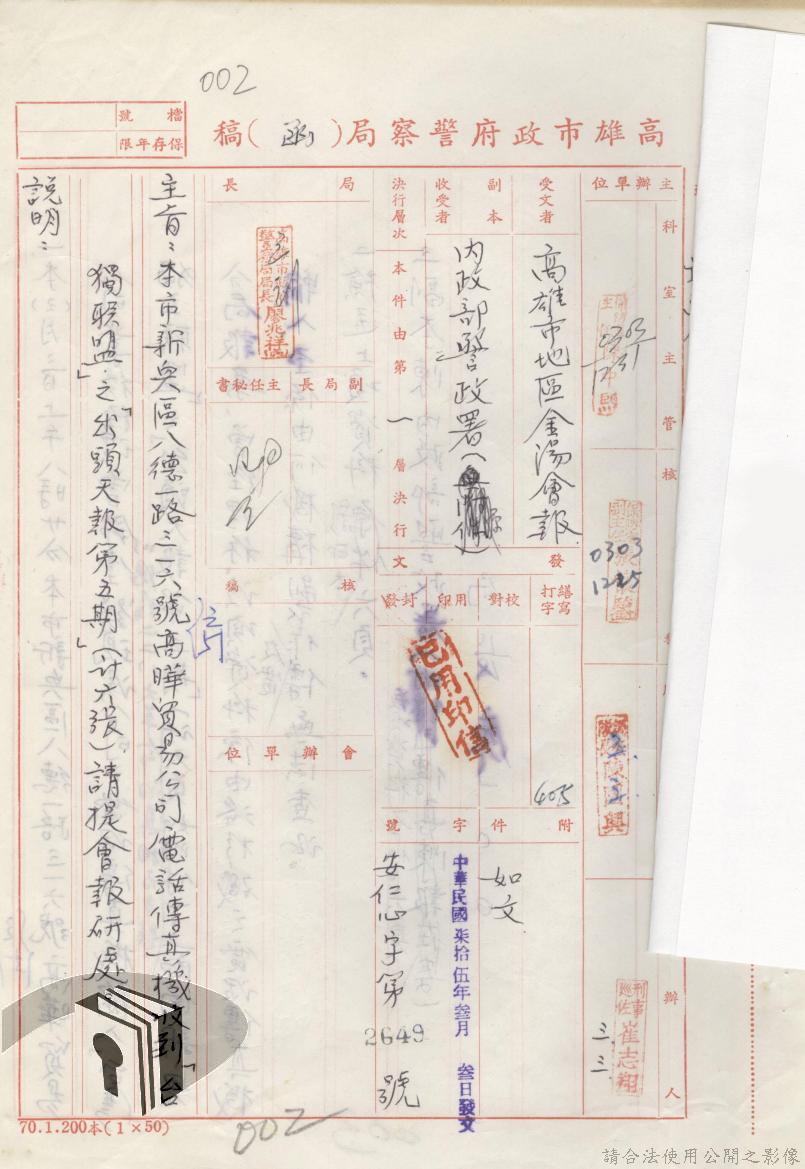 002
檔號
保存年限
高雄市政府警察局(函)稿
主辦單位
科室主管
核
0303
1215
辦人
刑事巡佐崔志翔
三、三
受文者
高雄市地區金湯會報
副本收受者
內政部警政署
決行層次
本件由第一層決行
發文
繕寫打字
校對
用印
封發
405
已用印信
附件
如文
中華民國柒拾伍年叁月叁日發文
字號
安仁心字第2649號
局長
廖兆祥
副局長
主任秘書
核稿
會辦單位
主旨：本市新興區八德一路三一六號高曄貿易公司電話傳真機收到「台
獨联盟」之「出頭天報第五期」（計六張）請提會報研處。
說明：
70.1.200本(1×50)
002
請合法使用公開之影像